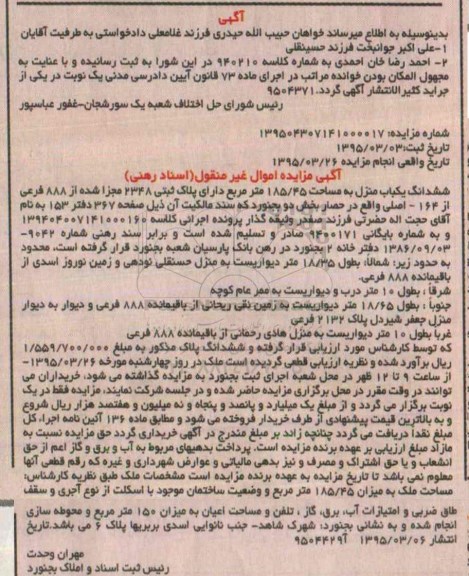 آگهی
بدینوسیله به اطلاع میرساند خواهان حبیب الله حیدری فرزند غلامعلی دادخواستی به طرفیت آقایان
۱-علی اکبر جوانبخت فرزند حسینقلی
۲- احمد رضا خان احمدی به شماره کلاسه ۹۴۰۲۱۰ در این شورا به ثبت رسانیده و با عنایت به
مجهول المکان بودن خوانده مراتب در اجرای ماده ۷۳ قانون آیین دادرسی مدنی یک نوبت در یکی از
جراید کثیرالانتشار آگهی گردد.۹۵۰۴۳۷۱
رئیس شورای حل اختلاف شعبه یک سورشجان-غفور عباسپور
شماره مزایده: ۱۳۹۵۰۴۳۰۷۱۴۱۰۰۰۰۱۷
تاریخ ثبت:۱۳۹۵/۰۳/۰۳
تاریخ واقعی انجام مزایده ۱۳۹۵/۰۳/۲۶
آگهی مزایده اموال غیر منقول(اسناد رهنی)
ششدانگ یکباب منزل به مساحت ۱۸۵/۴۵ متر مربع دارای پلاک ثبتی ۲۳۴۸ مجزا شده از ۸۸۸ فرعی
از ۱۶۴ - اصلی واقع در حصار بخش دو بجنورد که سند مالکیت آن ذیل صفحه ۳۶۷ دفتر ۱۵۳ به نام
آقای حجت اله حضرتی فرزند صفدر وثیقه گذار پرونده اجرائی کلاسه ۱۳۹۴۰۴۰۰۷۱۴۱۰۰۰۱۶۰
و به شماره بایگانی ۹۴۰۰۱۷۱ صادر و تسلیم شده است و برابر سند رهنی شماره ۹۰۴۲-
۱۳۸۶/۰۹/۰۳ دفتر خانه ۲ بجنورد در رهن بانک پارسیان شعبه بجنورد قرار گرفته است، محدود
به حدود زیر: شمالا: بطول ۱۸/۳۵ متر دیواریست به منزل حسنقلی نودهی و زمین نوروز اسدی از
باقیمانده ۸۸۸ فرعی.
شرقا : بطول ۱۰ متر درب و دیواریست به ممر عام کوچه
جنوبا : بطول ۱۸/۶۵ متر دیواریست به زمین نقی ریحانی از باقیمانده ۸۸۸ فرعی و دیوار به دیوار
منزل جعفر شیردل پلاک ۲۱۳۲ فرعی
غربا بطول ۱۰ متر دیواریست به منزل هادی رحمانی از باقیمانده ۸۸۸ فرعی
که توسط کارشناس مورد ارزیابی قرار گرفته و ششدانگ پلاک مذکور به مبلغ ۱/۵۵۹/۷۰۰/۰۰۰
ریال برآورد شده و نظریه ارزیابی قطعی گردیده است ملک در روز چهارشنبه مورخه ۱۳۹۵/۰۳/۲۶-
از ساعت ۹ تا ۱۲ ظهر در محل شعبه اجرای ثبت بجنورد به مزایده گذاشته می شود، خریداران می
توانند در وقت مقرر در محل برگزاری مزایده حاضر شده و در جلسه شرکت نمایند، مزایده فقط در یک
نوبت برگزار می گردد و از مبلغ یک میلیارد و پانصد و پنجاه و نه میلیون و هفتصد هزار ریال شروع
و به بالاترین قیمت پیشنهادی از طرف خریدار فروخته می شود و مطابق ماده ۱۳۶ آئین نامه اجرا، کل
مبلغ نقدا دریافت می گردد چنانچه زائد بر مبلغ مندرج در آگهی خریداری گردد حق مزایده نسبت به
مازاد مبلغ ارزیابی بر عهده برنده مزایده است. پرداخت بدهیهای مربوط به آب و برق و گاز اعم از حق
انشعاب و یا حق اشتراک و مصرف و نیز بدهی مالیاتی و عوارض شهرداری و غیره که رقم قطعی آنها
معلوم نمی باشد تا تاریخ مزایده به عهده برنده مزایده است مشخصات ملک طبق نظریه کارشناس:
مساحت ملک به میزان ۱۸۵/۴۵ متر مربع و وضعیت ساختمان موجود با اسکلت از نوع آجری و سقف
طاق ضربی و امتیازات آب، برق، گاز ، تلفن و مساحت اعیان به میزان ۱۵۰ متر مربع و محوطه سازی
انجام شده و به نشانی بجنورد: شهرک شاهد- جنب نانوایی اسدی بربریها پلاک ۶ می باشد.تاریخ
انتشار ۱۳۹۵/۰۳/۰۶ آ۹۵۰۴۴۲۹
مهران وحدت
رئیس ثبت اسناد و املاک بجنورد